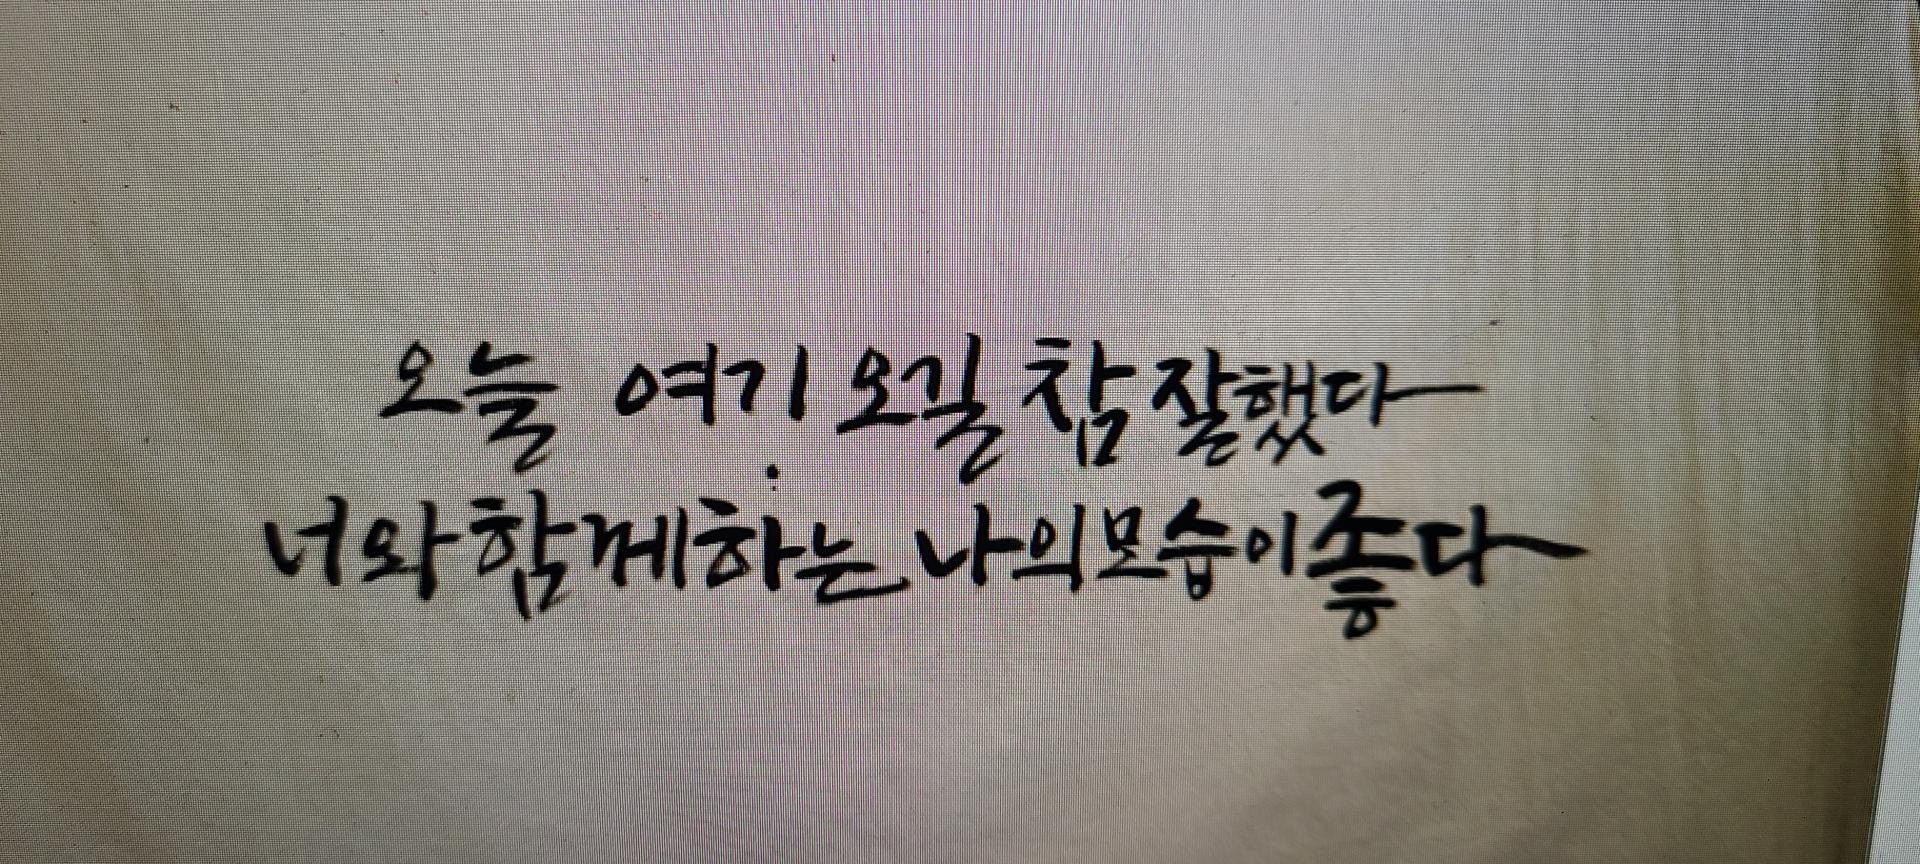 오늘 여기 오길 참 잘했다
너와 함께하는 나의 모습이 좋다